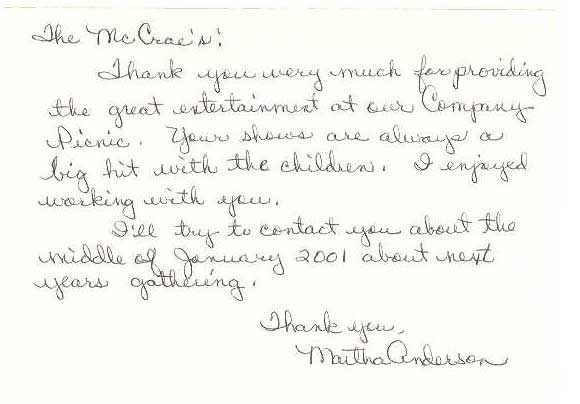 The McCrae's!
Thank you very much for providing
the great entertainment at our Company
Picnic. Your shows are always a
big hit with the children. I enjoyed
working with you.
I'll try to contact you about the
middle of January 2001 about next
years gathering.
Thank you,
Martha Anderson